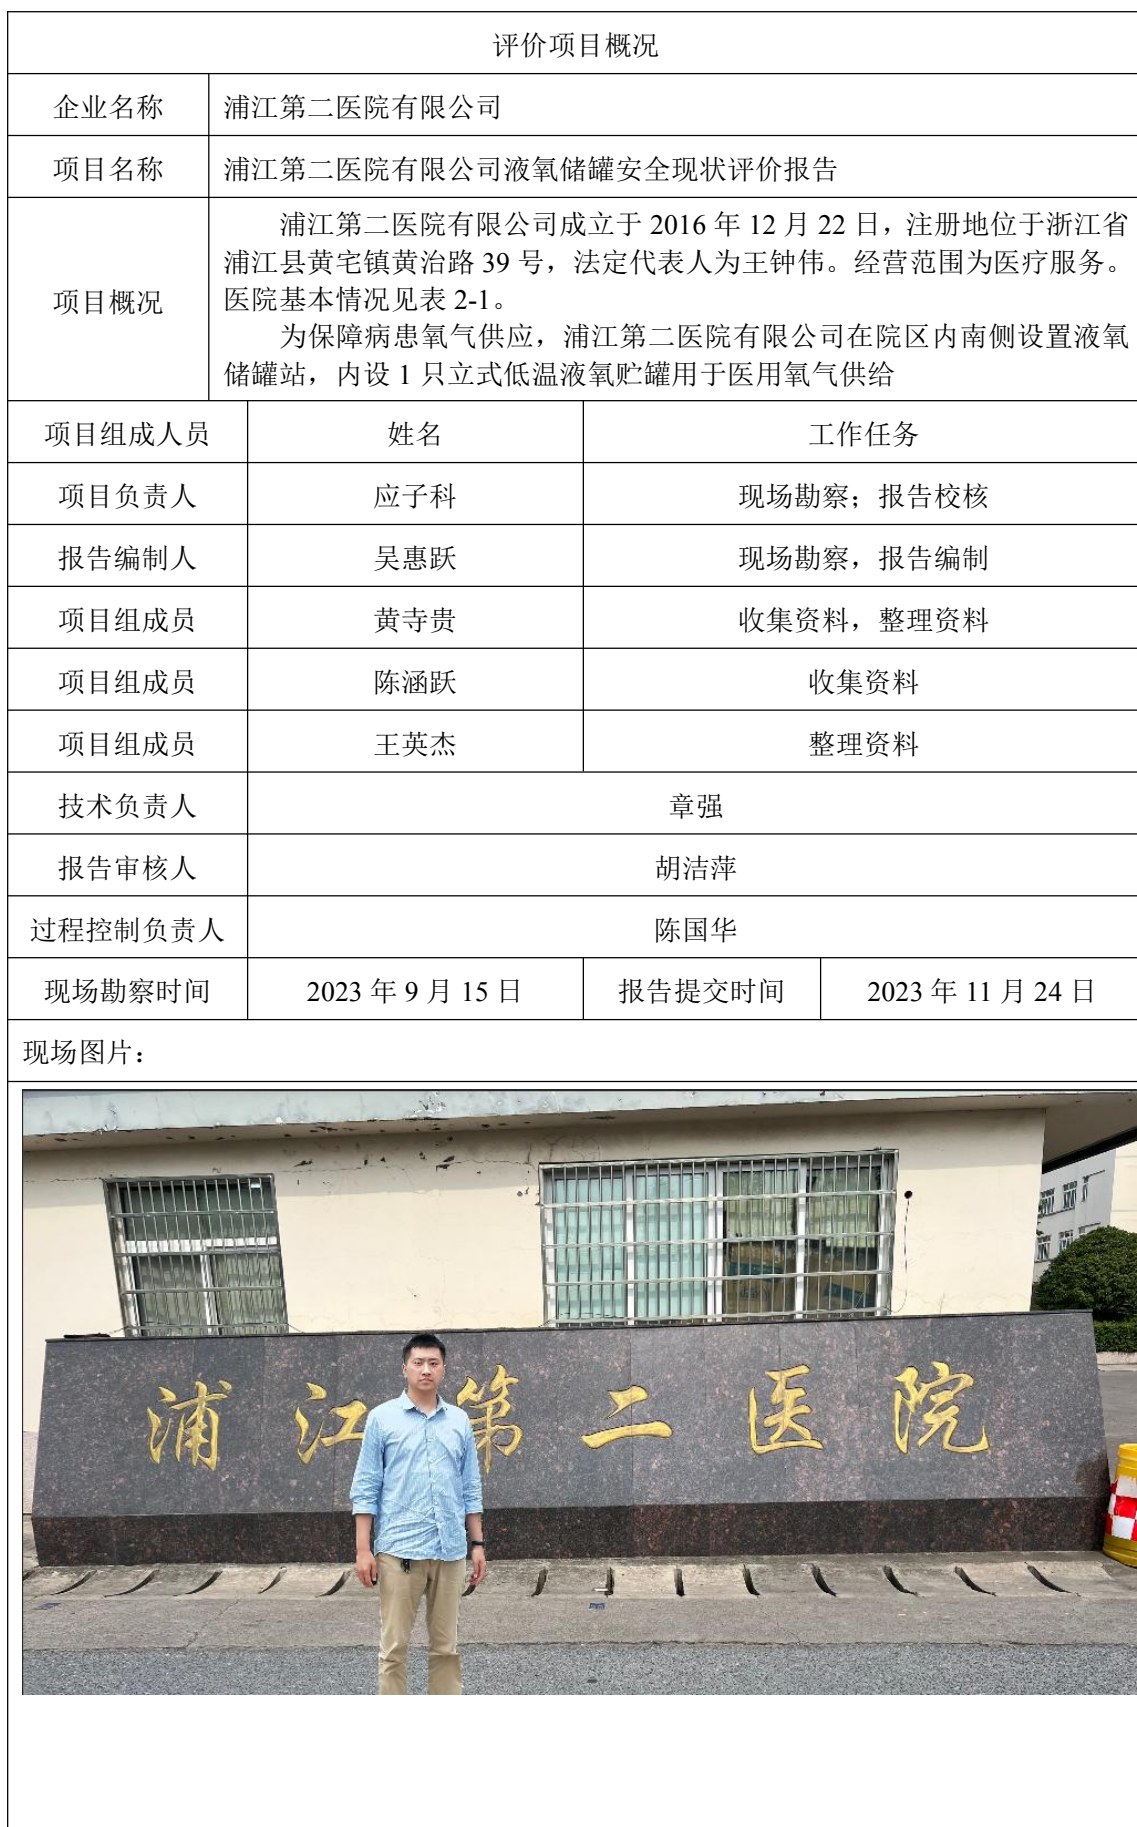 评价项目概况
企业名称 浦江第二医院有限公司
项目名称 浦江第二医院有限公司液氧储罐安全现状评价报告
项目概况
浦江第二医院有限公司成立于 2016 年 12 月 22 日，注册地位于浙江省
浦江县黄宅镇黄治路 39 号，法定代表人为王钟伟。经营范围为医疗服务。
医院基本情况见表 2-1。
为保障病患氧气供应，浦江第二医院有限公司在院区内南侧设置液氧
储罐站，内设 1 只立式低温液氧贮罐用于医用氧气供给
项目组成人员 姓名 工作任务
项目负责人 应子科 现场勘察；报告校核
报告编制人 吴惠跃 现场勘察，报告编制
项目组成员 黄寺贵 收集资料，整理资料
项目组成员 陈涵跃 收集资料
项目组成员 王英杰 整理资料
技术负责人 章强
报告审核人 胡洁萍
过程控制负责人 陈国华
现场勘察时间 2023 年 9 月 15 日 报告提交时间 2023 年 11 月 24 日
现场图片：
浦江第二医院